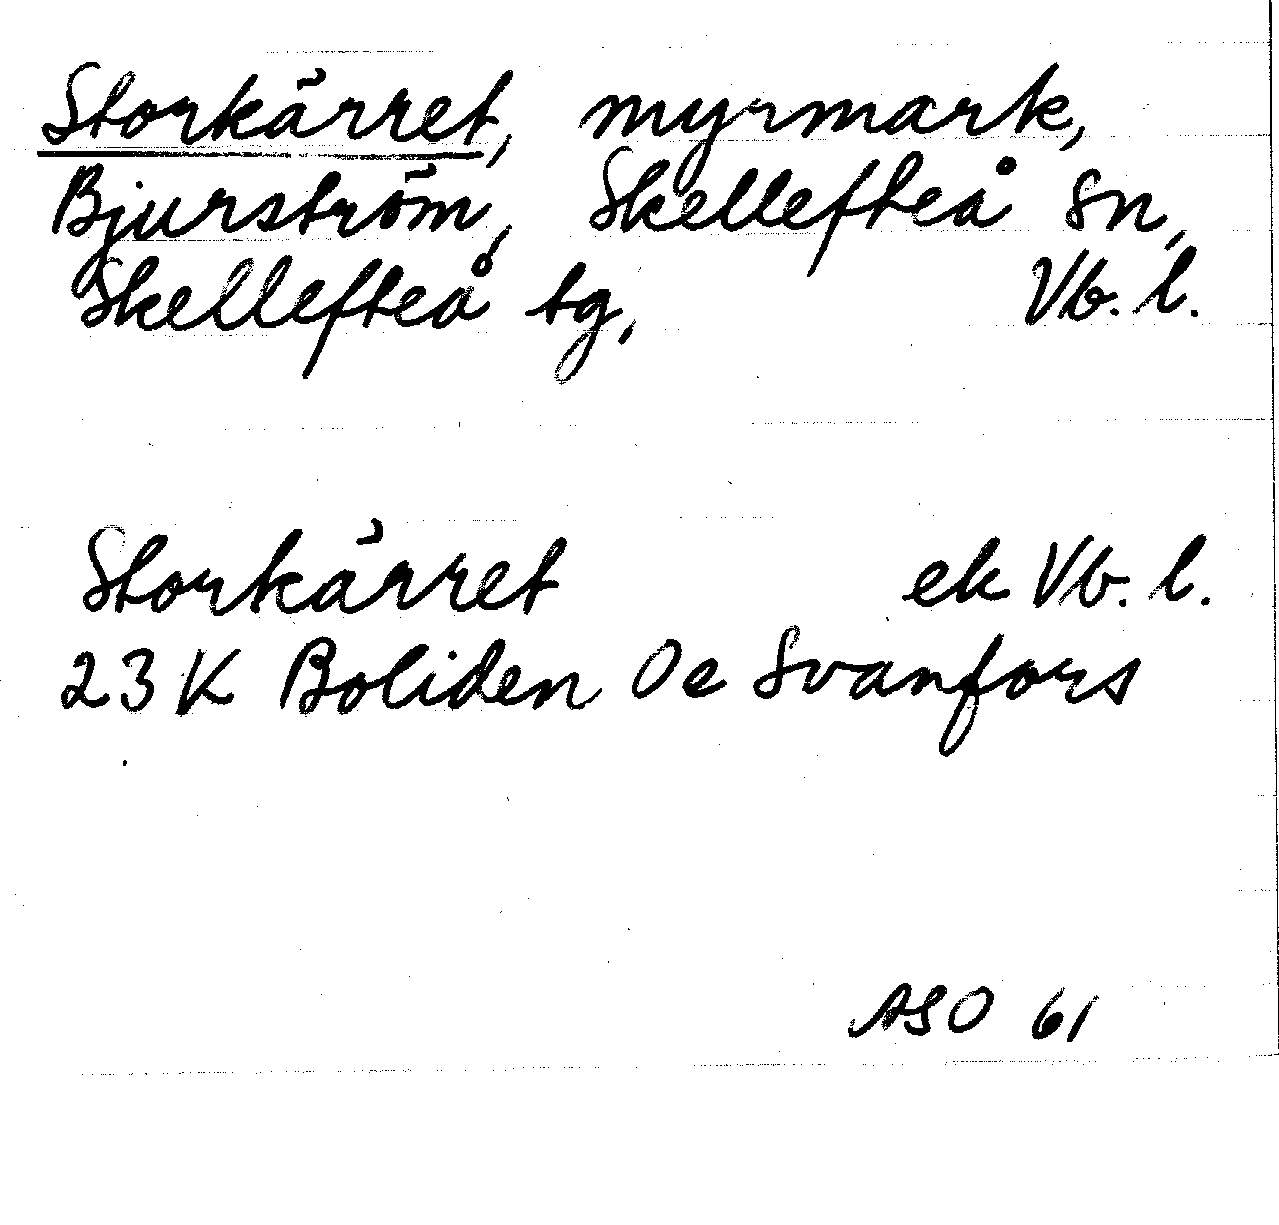 Storkärret, myrmark,
Bjurström, Skellefteå sn,
Skellefteå tg, Vb. l.
Storkärret ek Vb. l.
23K Boliden 0e Svanfors
ASO 61